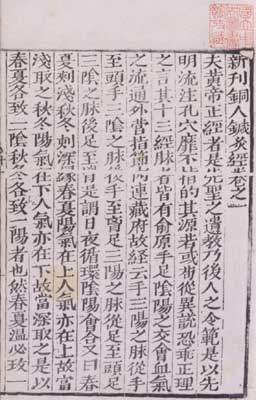 新刊銅人鍼灸經卷之一
夫黃帝正經者是先聖之遺教乃後人之令範是以先
明流注孔穴靡不指的其源者或有從異說恐乖正理
之言其十三經脉者皆有俞原手足陰陽之交會血氣
之流通外營指節內連藏府故經云手三陽之脉從手
至頭手三陰之脉從手至胷足三陽之脉從足
三陰之脉後足至是謂日夜循環陰陽會合又曰春
夏刺淺秋冬刺深緣春夏陽氣在上人氣亦在上故當
淺取之秋冬陽氣在下人氣亦在下故當深取之是以
春夏冬致一陰秋冬各致一陽者也然春夏溫必致一